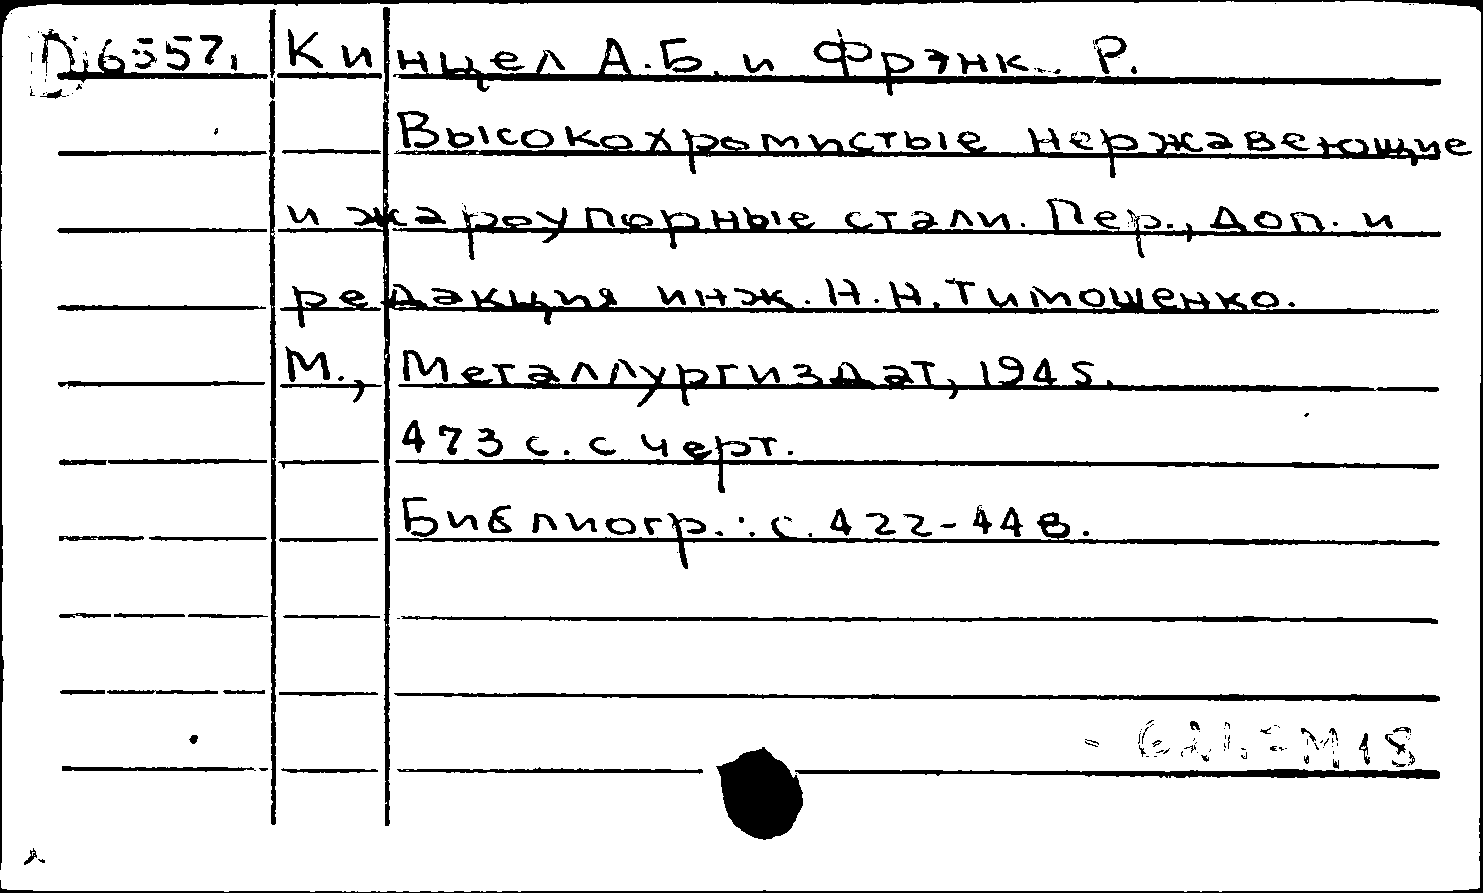 D 6557. Кинцел А.Б. и Фрэнк Р.
Высокохромистые нержавеющие
и жароупорные стали. Пер., доп. и
редакция инж. Н.Н. Тимошенко.
М., Металлургиздат, 1945.
473 с. с черт.
Библиогр.: с. 422-448.